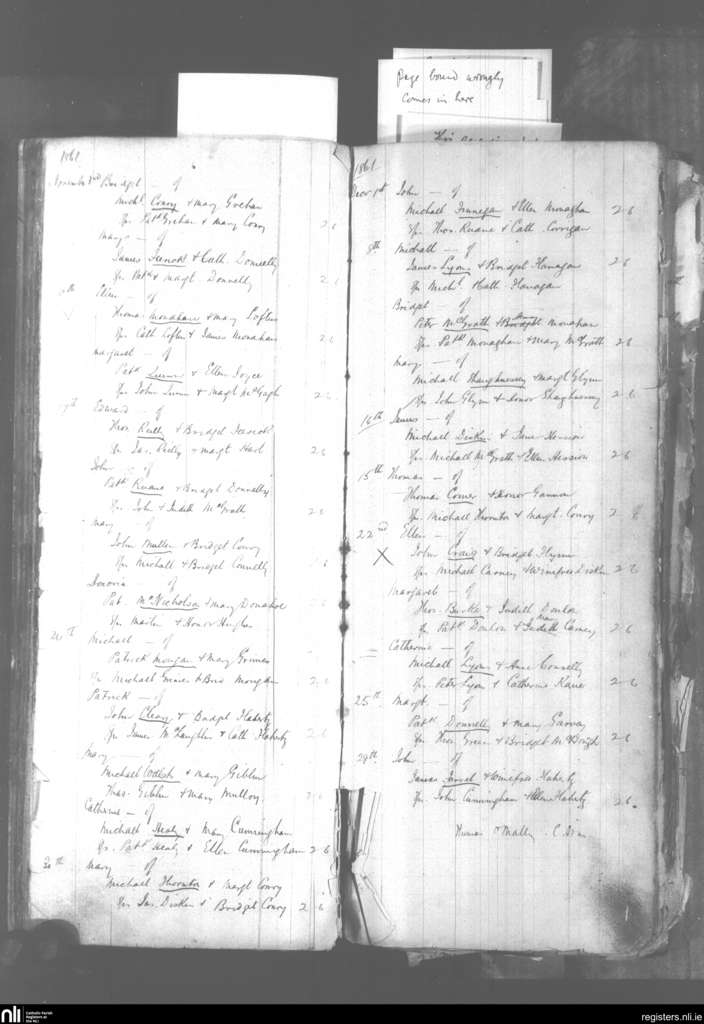 page bound wrongly
comes in here
1861
November 3rd Bridget of
Michl Conry & Mary Grehan
Sps Patk Grehan & Mary Conry 2-6
Mary - of
James & Cath Donnelly
Sps Patk & Margt Donnelly 2-6
Ellen - of
Thomas Monahan & Mary Loftus
Sps Cath Loftus & James Monahan 2-6
Margaret - of
Patk & Ellen Joyce
Sps John & Margt 2-6
17th Edward - of
Thos Reilly & Bridget
Sps Jas. Reilly & Margt 2 6
John - of
Patk Ruane & Bridget Donnelly
Sps John & Judith McGrath 2-6
Mary of
John Mullen & Bridget Conry
Sps Michall & Bridget Connelly 2-6
Honoria of
Pat. McNicholas & Mary Donahoe
Sps Martin & Honor Hughes
Michael - of
Patrick Morgan & Mary Grimes
Sps Michael Grimes & Brid Morgan 2-6
Patrick - of
John Cleary & Bridget Flaherty
Sps James McLaughlin & Cath Flaherty 2-6
Mary - of
Michael & Mary Giblin
Thos. Giblin & Mary Mulloy. 2-6
Catherine - of
Michall Healy & Mary Cunningham
Sps. Patk Healy & Ellen Cunningham 2-6
Mary of
Michael Thornton & Margt Conry
Sps Jas. Disken & Bridget Conry 2-6
1861
Decr 1st John - of
Michall Finnegan & Ellen Monaghan 2-6
Sps Thos. Ruane & Cath. Corrigan
8th Michall - of
James Lyons & Bridget Flanagan 2-6
Sps Michl & Cath Flanagan
Bridget of
Peter McGrath & Bridget Monahan
Sps Patk Monaghan & Mary McGrath 2-6
Mary - of
Michael Shaughnessy & Margt Glynn
Sps John Glynn & Honor Shaughnessy 2-6
James - of
Michael Disken & Jane Hession
Sps Michall McGrath & Ellen Hession 2-6
15th Thomas - of
Thomas Comer & Honor Gannon
Sps Michall Thornton & Margt. Conry 2-6
22nd Ellen - of
X John Craig & Bridget Flynn
Sps Michael Carney & Winefred Disken 2-6
Margaret - of
Thos. Burke & Judith Donlon
Sps Patk Donlon & Judith Mary Carney 2-6
Catherine - of
Michall Lyons & Anne Connelly
Sps Peter Lyons & Catherine Kane 2-6
25th Margt. - of
Patk Donnelly & Mary Garvey
Sps Thos. Green & Bridget McHugh 2-6
29th John - of
James & Winefred Flaherty
Sps John Cunningham & Ellen Flaherty 2-6
Thomas O'Malley. C.
nli
Catholic Parish
Registers at
the NLI
registers.nli.ie